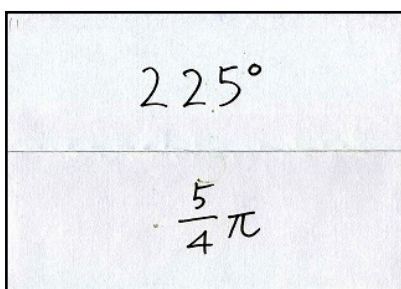 225°
5/4 π